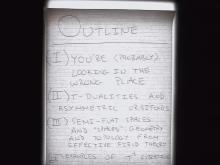 OUTLINE
I) YOU'RE (PROBABLY)
LOOKING IN THE
WRONG PLACE
II) T-DUALITIES AND
ASYMMETRIC ORBIFOLDS
III) SEMI-FLAT SPACES
AND "SPACES": GEOMETRY
AND TOPOLOGY FROM
EFFECTIVE FIELD THEORY
EXAMPLES OF T²